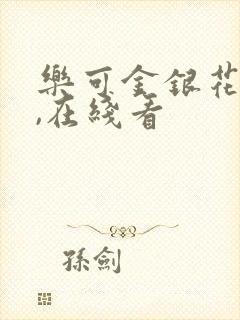 樂可金銀花
,在綫看
孫劍